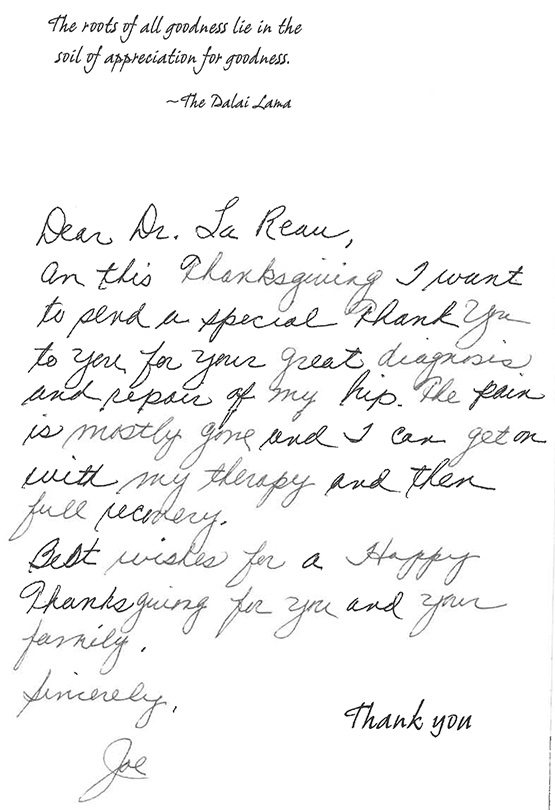 The roots of all goodness lie in the
soil of appreciation for goodness.
~The Dalai Lama
Dear Dr. La Reau,
On this Thanksgiving I want
to send a special Thank You
to you for your great diagnosis
and repair of my hip. The pain
is mostly gone and I can get on
with my therapy and then
full recovery.
Best wishes for a Happy
Thanksgiving for you and your
family.
Sincerely,
Joe
Thank you